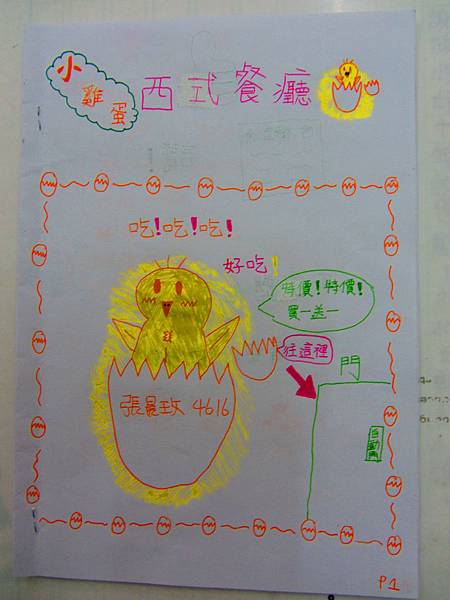 小雞蛋
西式餐廳
吃!吃!吃!
好吃!
特價!特價!
買一送一
往這裡
門
張晨玫 4616
自動門
P1